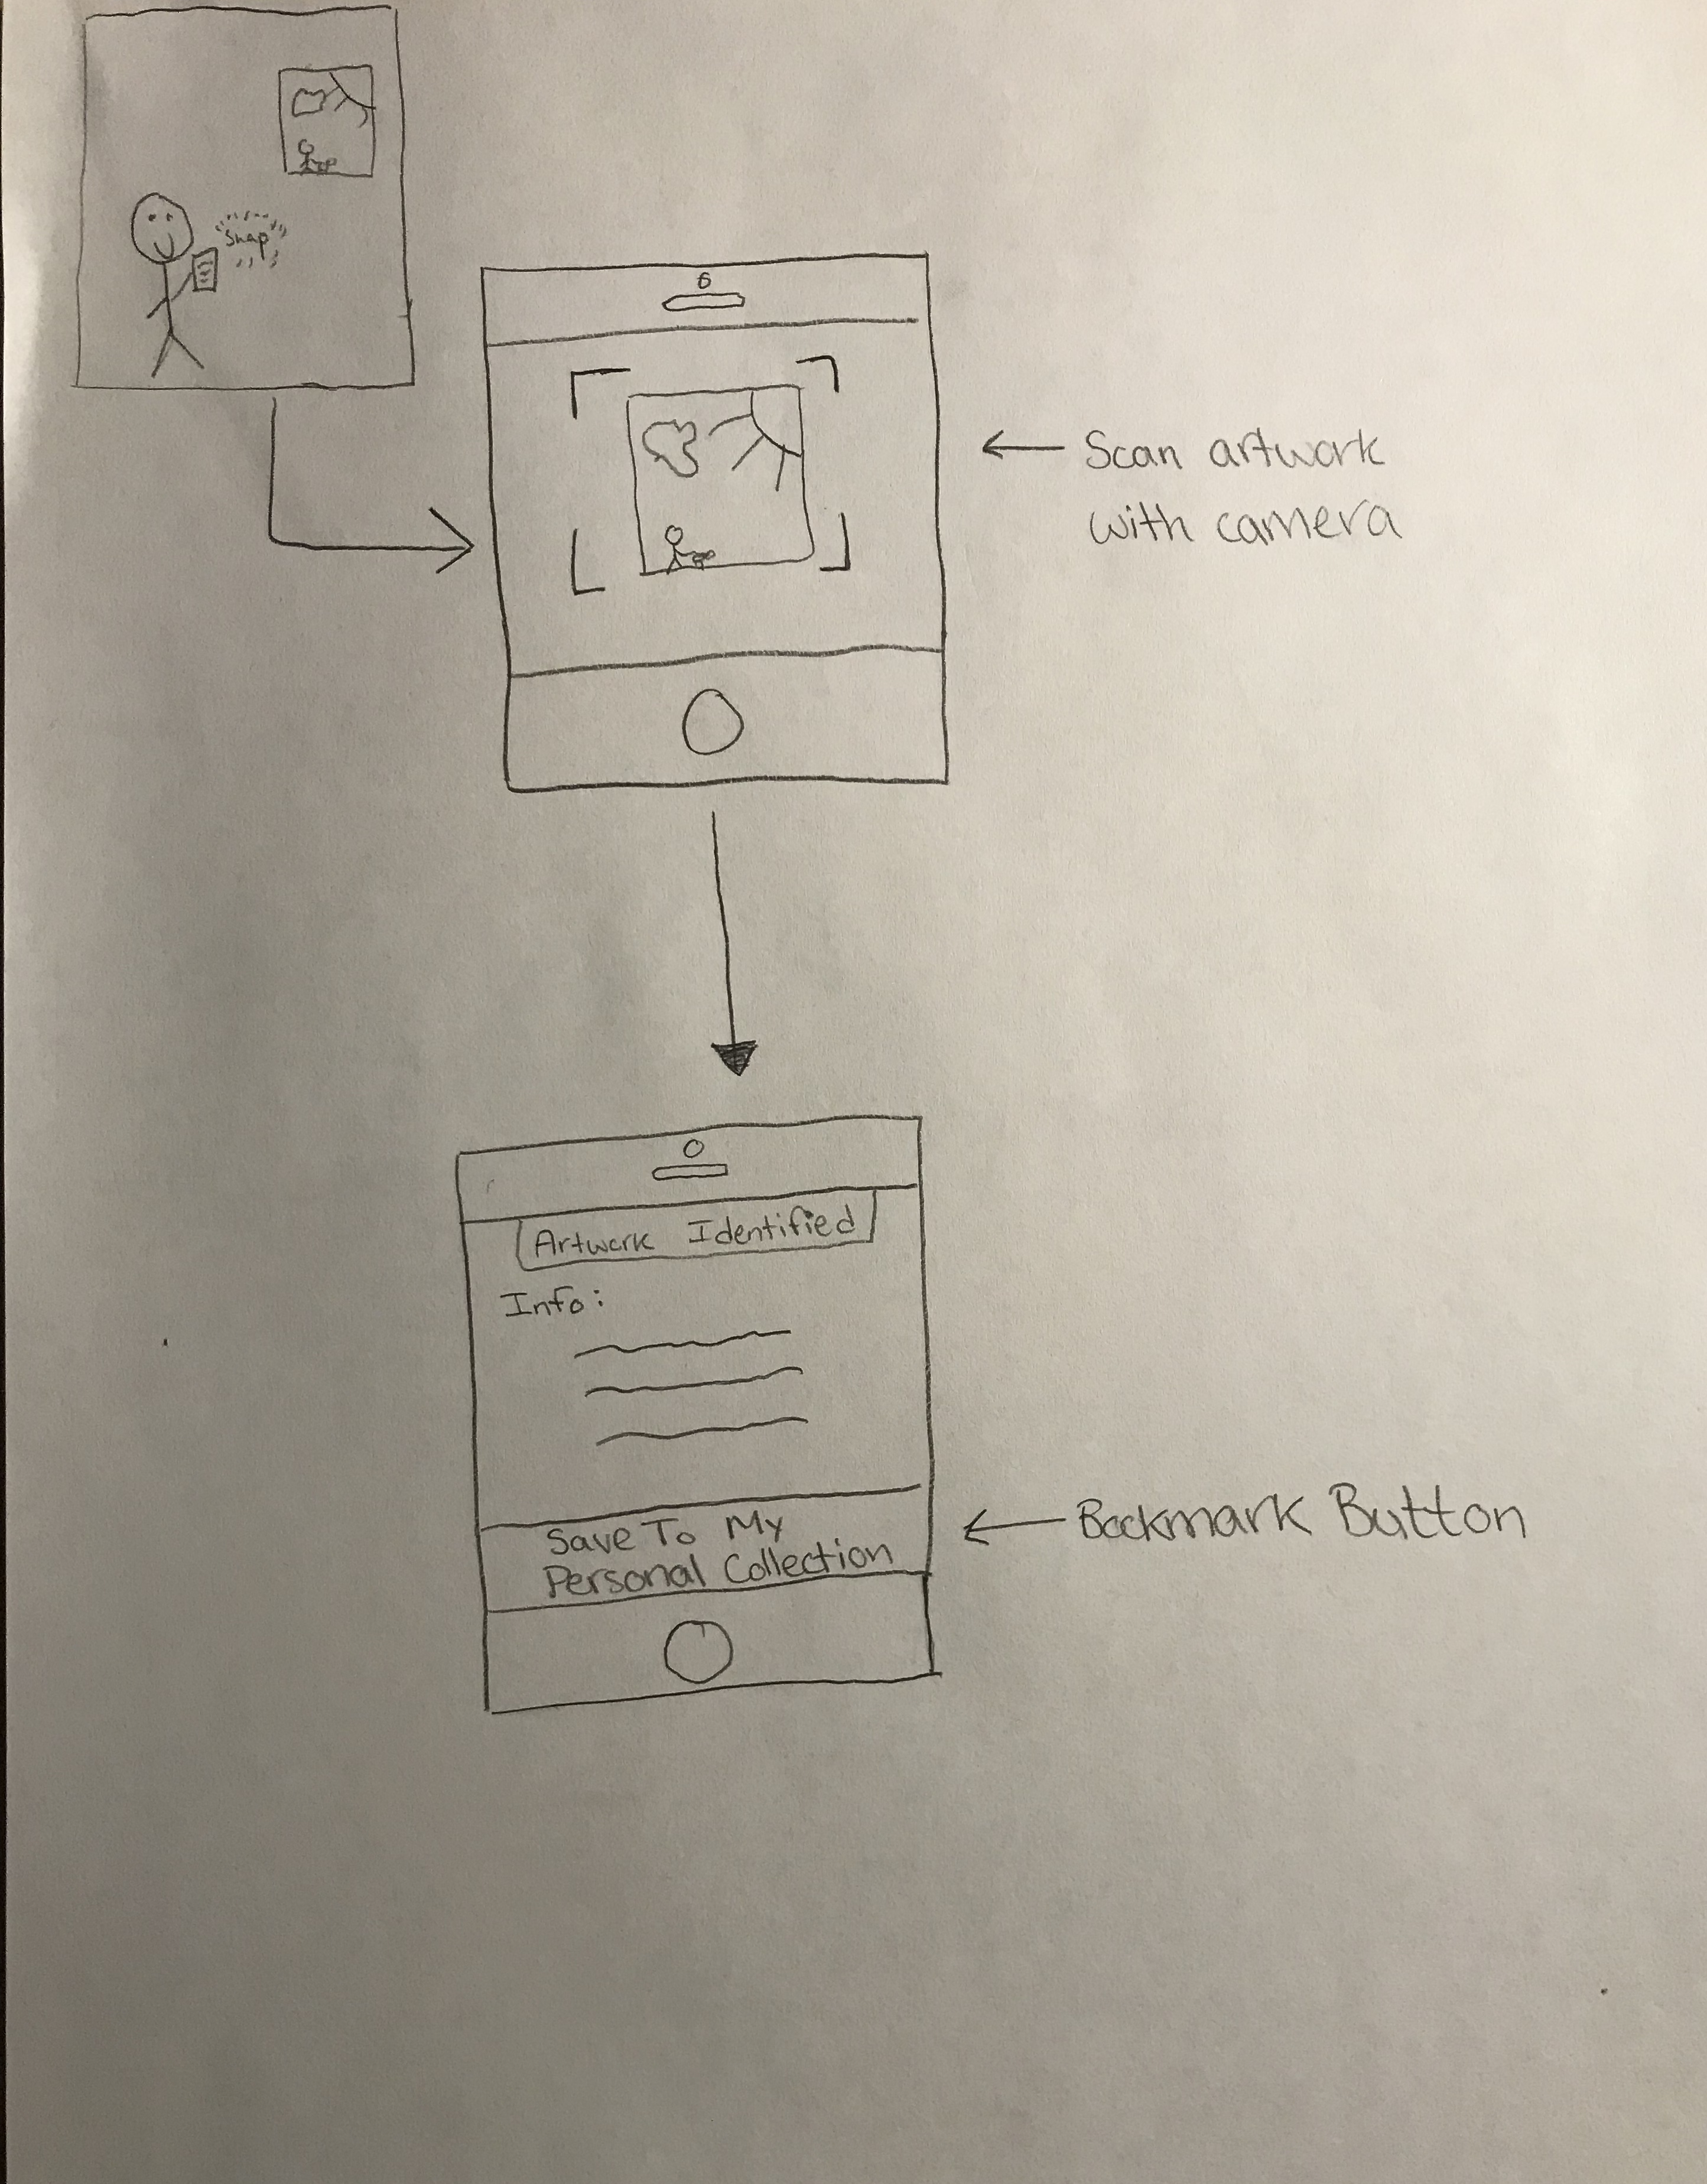 Snap
Scan artwork
with camera
Artwork Identified
Info:
Save To My
Personal Collection
Bookmark Button